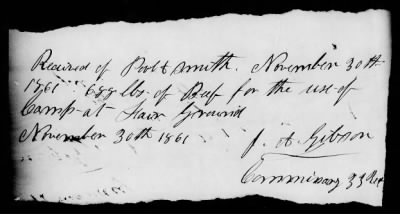 Received of Robt Smith. November 30th
1861 688 lbs of Beef for the use of
Camp at Fair Ground
November 30th 1861
J. A. Gibson
Commissary 33 Regt